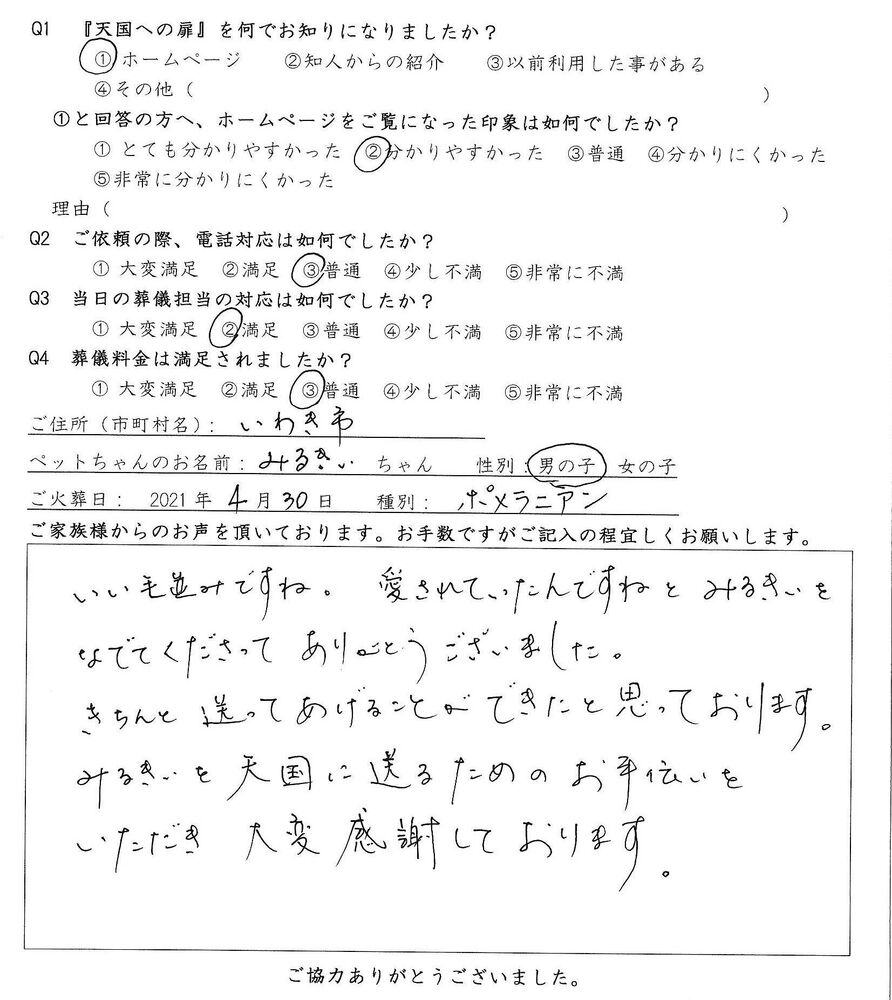 Q1 『天国への扉』を何でお知りになりましたか?
①ホームページ ②知人からの紹介 ③以前利用した事がある
④その他( )
①と回答の方へ、ホームページをご覧になった印象は如何でしたか?
① とても分かりやすかった ②分かりやすかった ③普通 ④分かりにくかった
⑤非常に分かりにくかった
理由( )
Q2 ご依頼の際、電話対応は如何でしたか?
① 大変満足 ②満足 ③普通 ④少し不満 ⑤非常に不満
Q3 当日の葬儀担当の対応は如何でしたか?
① 大変満足 ②満足 ③普通 ④少し不満 ⑤非常に不満
Q4 葬儀料金は満足されましたか?
① 大変満足 ②満足 ③普通 ④少し不満 ⑤非常に不満
ご住所(市町村名): いわき市
ペットちゃんのお名前: みるきぃ ちゃん 性別: 男の子 女の子
ご火葬日: 2021年 4月 30日 種別: ポメラニアン
ご家族様からのお声を頂いております。お手数ですがご記入の程宜しくお願いします。
いい毛並みですね。 愛されていったんですねと みるきぃを
なでてくださって ありがとうございました。
きちんと 送ってあげることが できたと思っております。
みるきぃを 天国に送るための お手伝いを
いただき 大変感謝しております。
ご協力ありがとうございました。